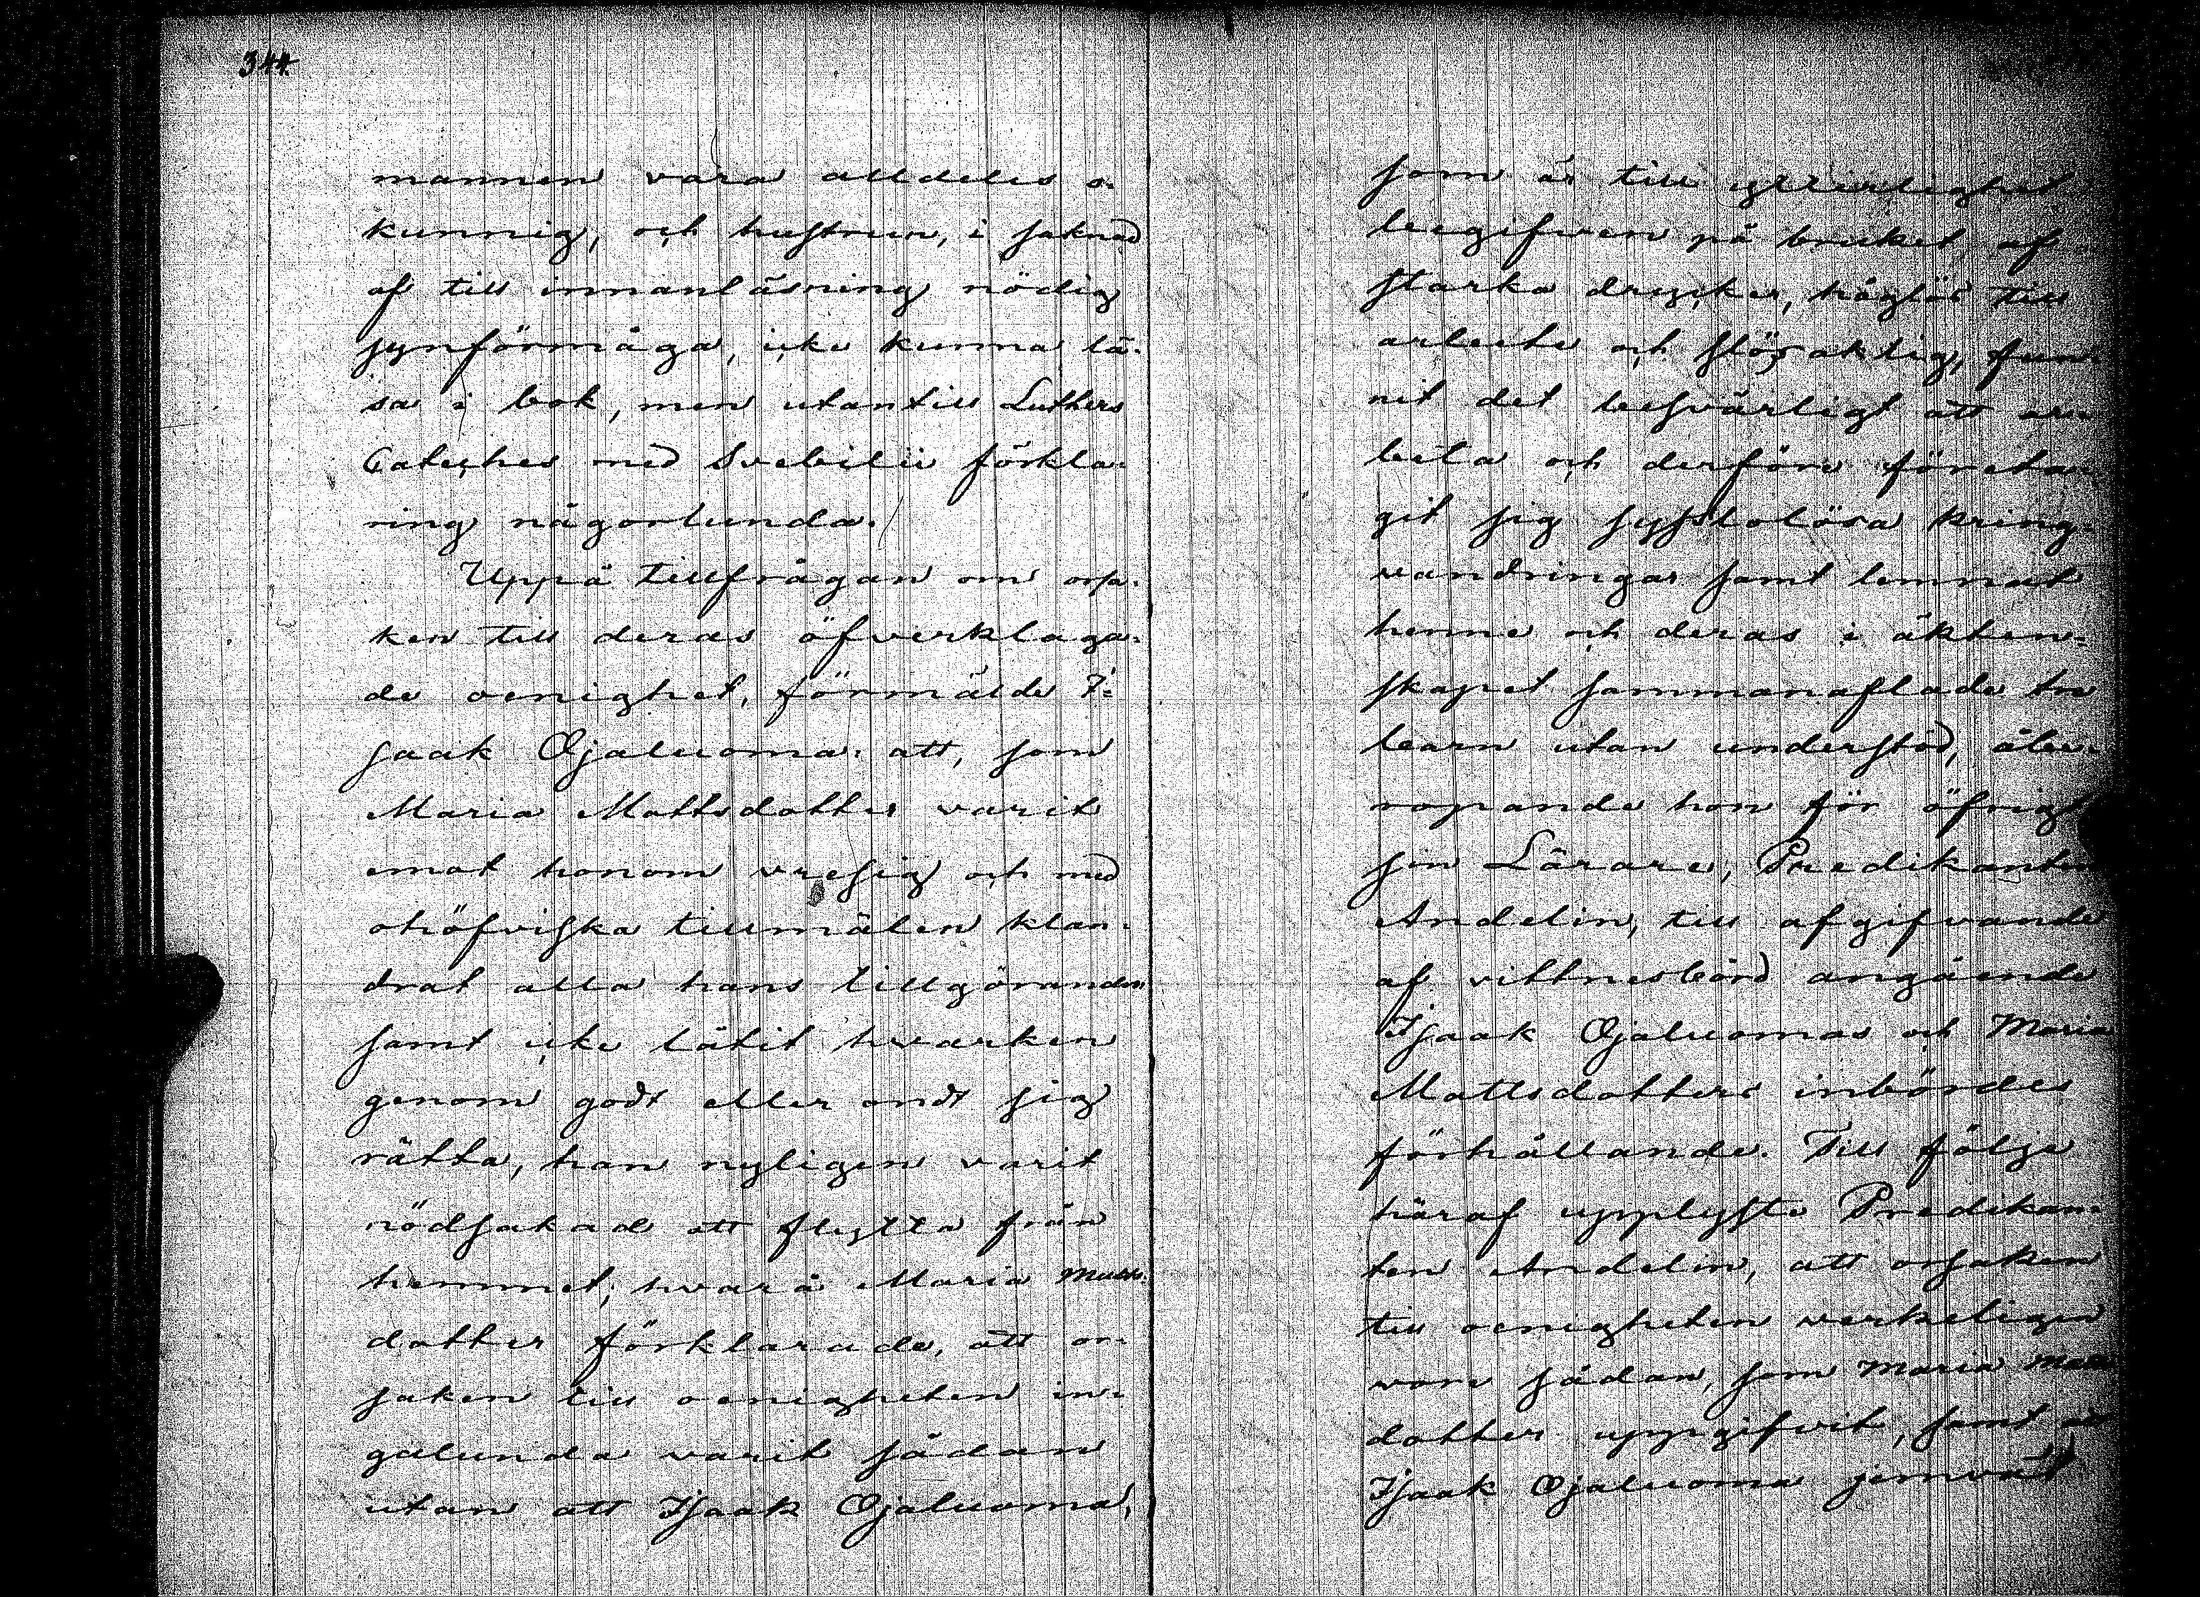 344.
mannen vara alldeles o-
kunnig, och hustrun, i saknad
af till innanläsning nödig
synförmåga, icke kunna lä-
sa i bok, men utantill Luthers
Cateches med Svebilii förkla-
ring någorlunda.
Uppå tillfrågan om orsa-
ken till deras öfverklaga-
de oenighet, förmälde I-
saak Ojaluoma: att, som
Maria Mattsdotter varit
emot honom vresig och med
ohöfviska tillmälen klan-
drat alla hans tillgöranden
samt icke låtit hvarken
genom godt eller ondt sig
rätta, han nyligen varit
nödsakad att flytta från
hemmet; hvarå Maria Matts-
dotter förklarade, att or-
saken till oenigheten in-
galunda varit sådan
utan att Isaak Ojaluoma,
som är till ytterlighet
begifven på bruket af
starka drycker, håglös till
arbete och slösaktig, fun-
nit det besvärligt att ar-
beta och derföre företa-
git sig sysslolösa kring-
vandringar samt lemnat
henne och deras i äkten-
skapet sammanaflade tre
barn utan understöd, åbe-
ropande hon för öfrigt
sin Lärare, Predikanten
Andelin, till afgifvande
af vittnesbörd angående
Isaak Ojaluomas och Maria
Mattsdotters inbördes
förhållande. Till följe
häraf upplyste Predikan-
ten Andelin, att orsaken
till oenigheten verkeligen
vore sådan, som Maria Matts-
dotter uppgifvit, samt att
Isaak Ojaluoma jemväl